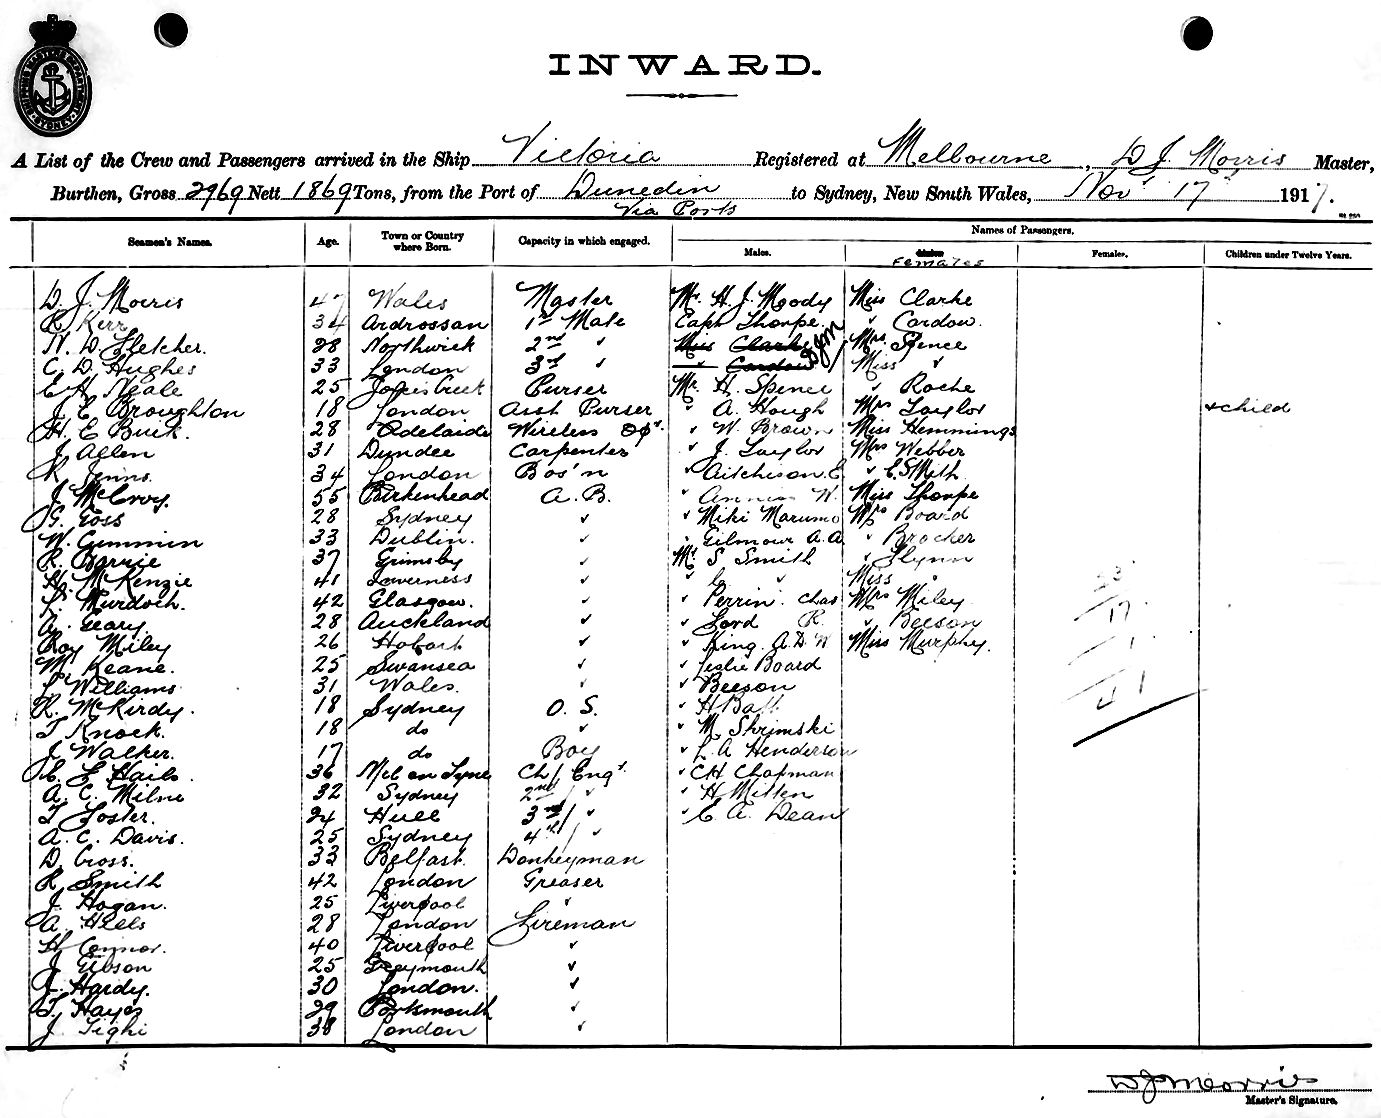 INWARD.
SHIPPING MASTERS DEPARTMENT SYDNEY
A List of the Crew and Passengers arrived in the Ship Victoria Registered at Melbourne, D J. Morris Master,
Burthen, Gross 2969 Nett 1869 Tons, from the Port of Dunedin to Sydney, New South Wales, Nov 17 1917.
Via Ports
Names of Passengers.
Seamen's Names. Age. Town or Country where Born. Capacity in which engaged. Males. Females Females. Children under Twelve Years.
D. J. Morris 47 Wales Master Mr. H. J. Moody Miss Clarke
R. Kerr 34 Ardrossan 1st Mate Capt Thorpe. " Cardow.
N. D. Fletcher. 28 Northwick 2nd " Miss Clarke Mrs Spence
C. D. Hughes 33 London 3rd " " Cardow Miss "
E. H. Neale 25 Purser Mr H. Spence " Roche
J. E. Broughton 18 London Asst Purser " A. Hough Mrs Taylor + child
H. E. Buik. 28 Adelaide Wireless Opr. " W. Brown Miss Hemmings
J. Allen 31 Dundee Carpenter " J. Taylor Mrs Webber
R. 34 London Bos'n " Aitchison E. " E. Smith
J. McEvoy. 55 Birkenhead A. B. " W. Miss Thorpe
G. Goss 28 Sydney " " Miki Marumo Mrs Board
W. Cummin 33 Dublin. " " Gilmour A. A. " Brocher
R. Barrie 37 Grimsby " Mr. S Smith " Flynn
H. McKenzie 41 Inverness " " " Miss "
L. Murdoch. 42 Glasgow. " " Perrin. Chas Mrs Miley
A. Geary. 28 Auckland " " Lord R. " Beeson
Roy Miley 26 Hobart " " King. A. D. W. Miss Murphy.
M. Keane. 25 Swansea " " Leslie Board
L. Williams 31 Wales. " " Beeson
R. McKirdy. 18 Sydney O. S. " H Batt
T Knock. 18 do " " M. Shrimski
J. Walker. 17 do Boy " L. A Henderson
E. E Hails. 36 Ncl on Tyne Ch/ Engr. " CH Chapman
A. C. Milne 32 Sydney 2nd/ " " H Mitten
T Foster. 24 Hull 3rd/ " " C. A. Dean
A. C. Davis. 25 Sydney 4th/ "
D. Cross. 33 Belfast. Donkeyman
R. Smith 42 London Greaser
J. Hogan. 25 Liverpool "
A. Hills 28 London Fireman
H Connor. 40 Liverpool "
J. Gibson 25 Greymouth "
J. Hardy. 30 London. "
T. Hayes 29 Portsmouth "
J. Tighe 38 London "
23
17
1
41
D J Morris
Master's Signature.